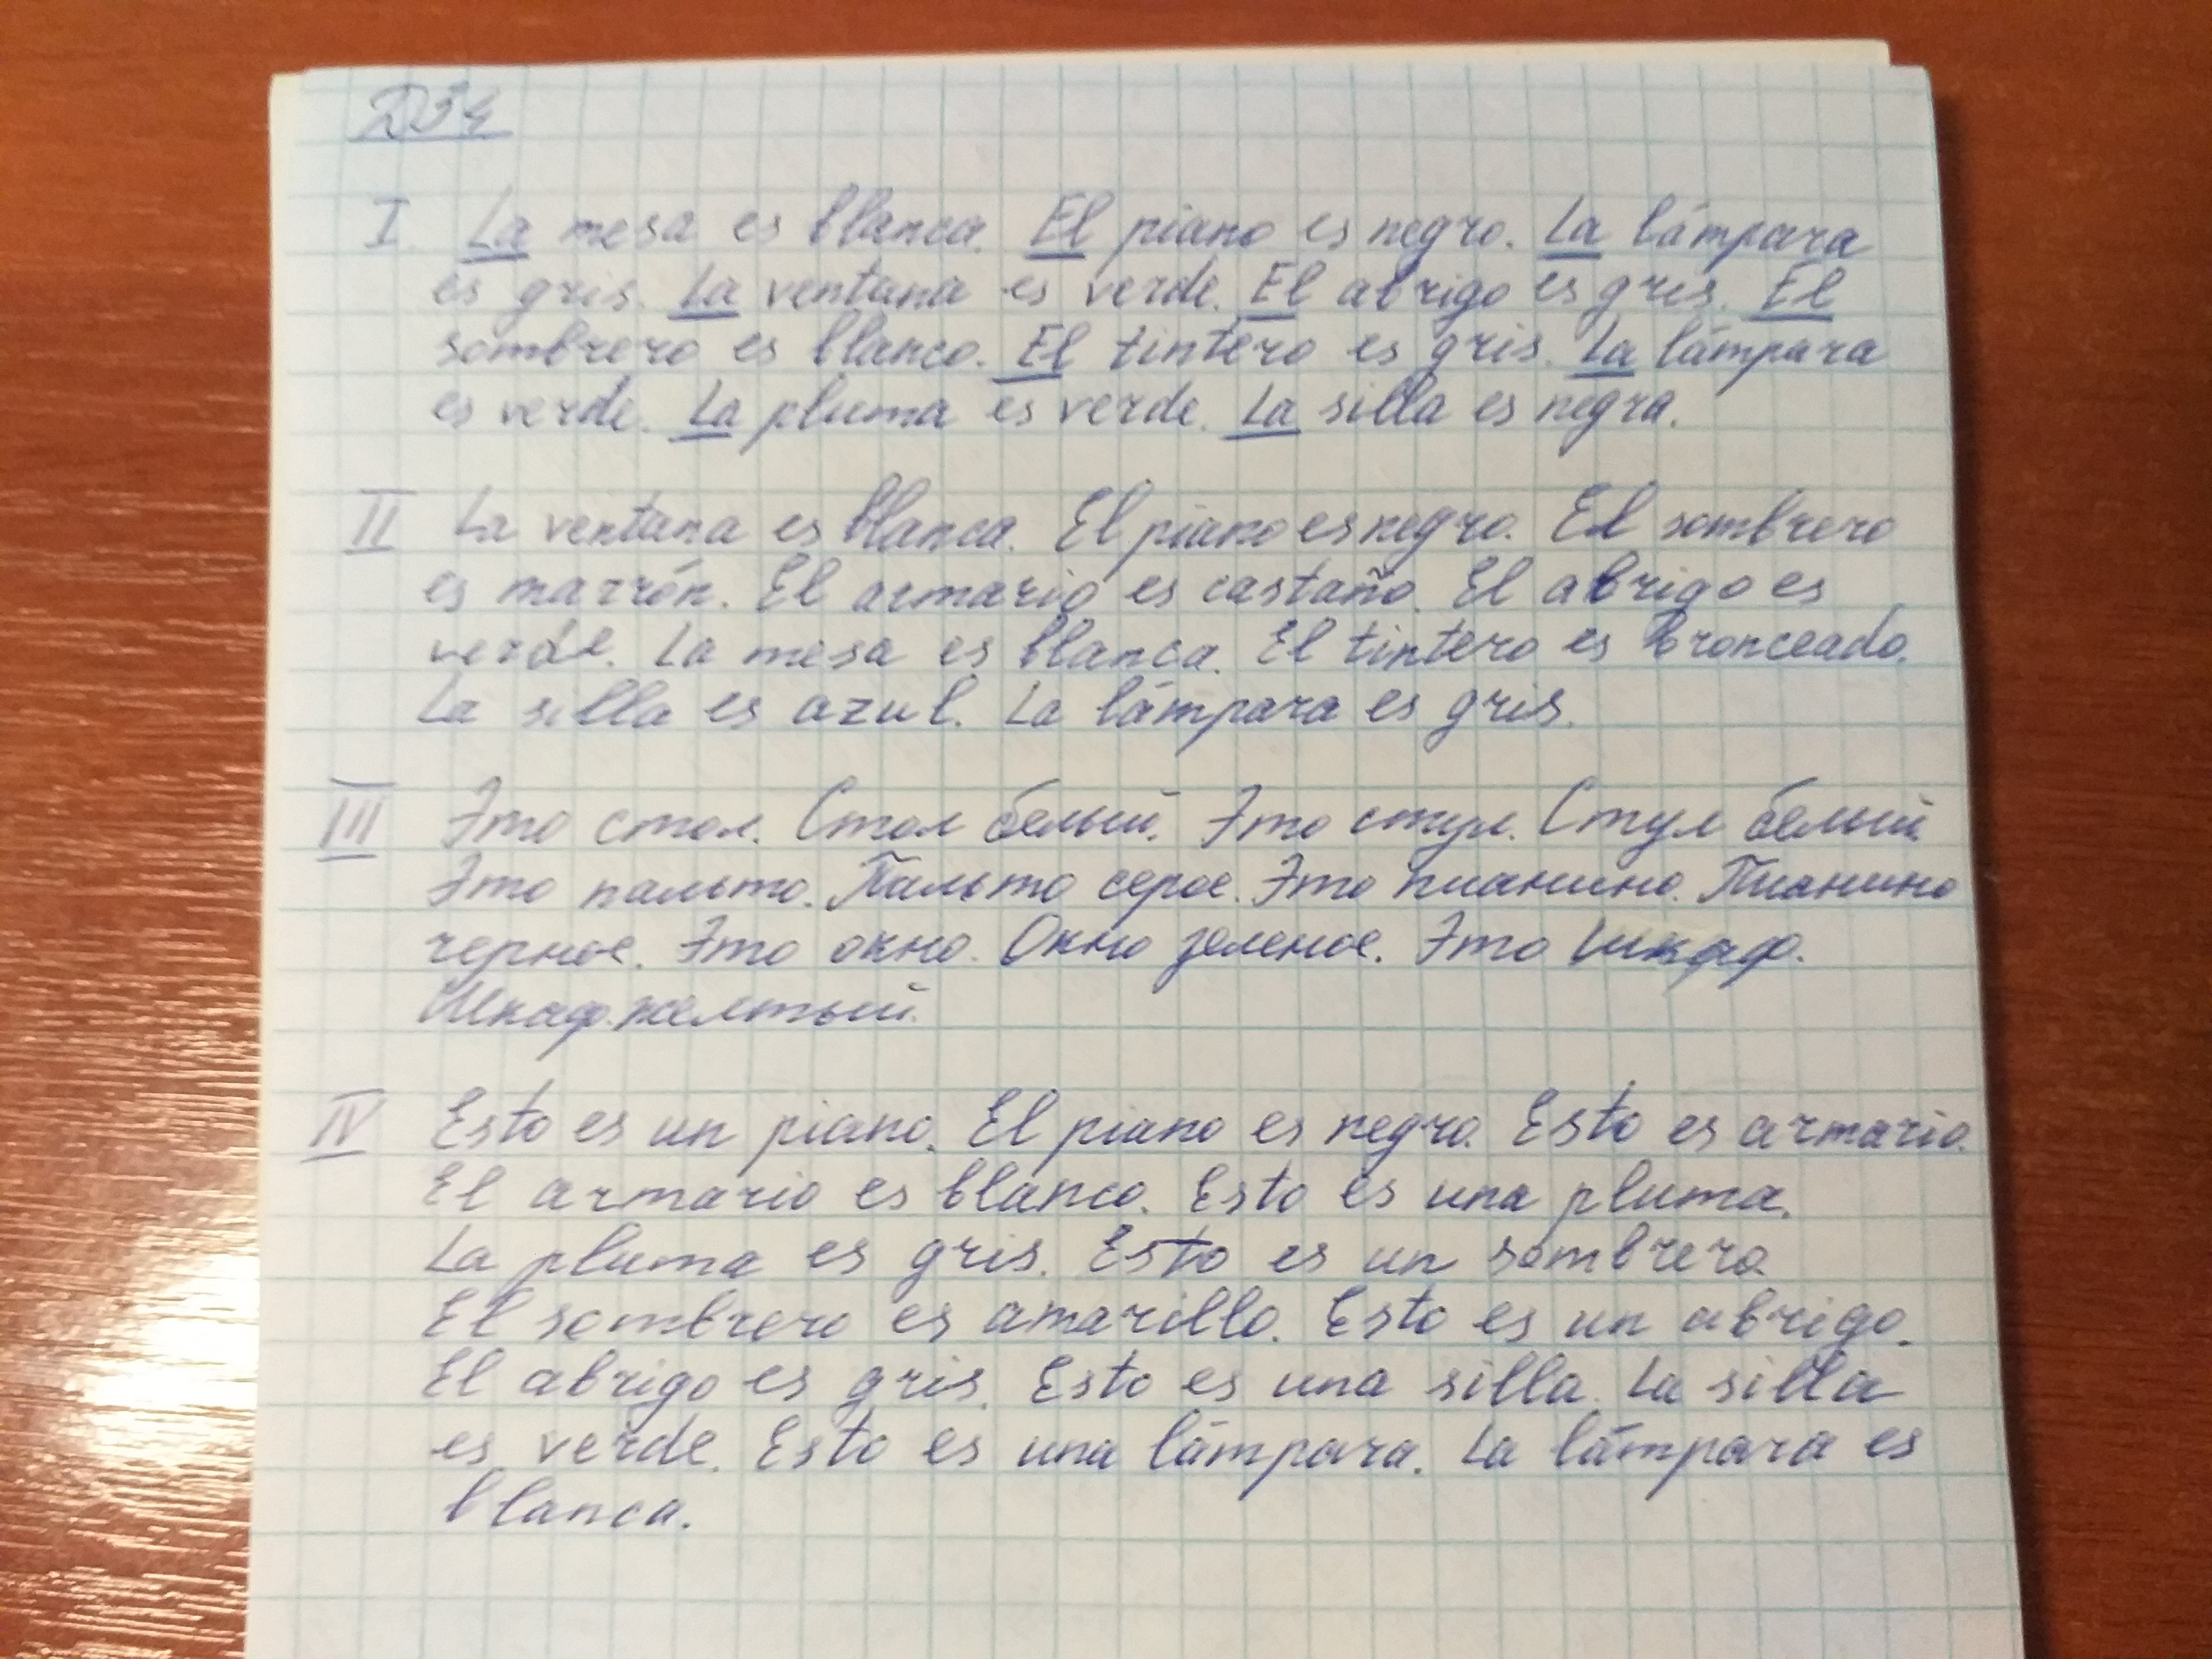 ДЗ4
I La mesa es blanca. El piano es negro. La lámpara
es gris. La ventana es verde. El abrigo es gris. El
sombrero es blanco. El tintero es gris. La lámpara
es verde. La pluma es verde. La silla es negra.
II La ventana es blanca. El piano es negro. El sombrero
es marrón. El armario es castaño. El abrigo es
verde. La mesa es blanca. El tintero es bronceado.
La silla es azul. La lámpara es gris.
III Это стол. Стол белый. Это стул. Стул белый.
Это пальто. Пальто серое. Это пианино. Пианино
черное. Это окно. Окно зеленое. Это шкаф.
Шкаф желтый.
IV Esto es un piano. El piano es negro. Esto es armario.
El armario es blanco. Esto es una pluma.
La pluma es gris. Esto es un sombrero.
El sombrero es amarillo. Esto es un abrigo.
El abrigo es gris. Esto es una silla. La silla
es verde. Esto es una lámpara. La lámpara es
blanca.